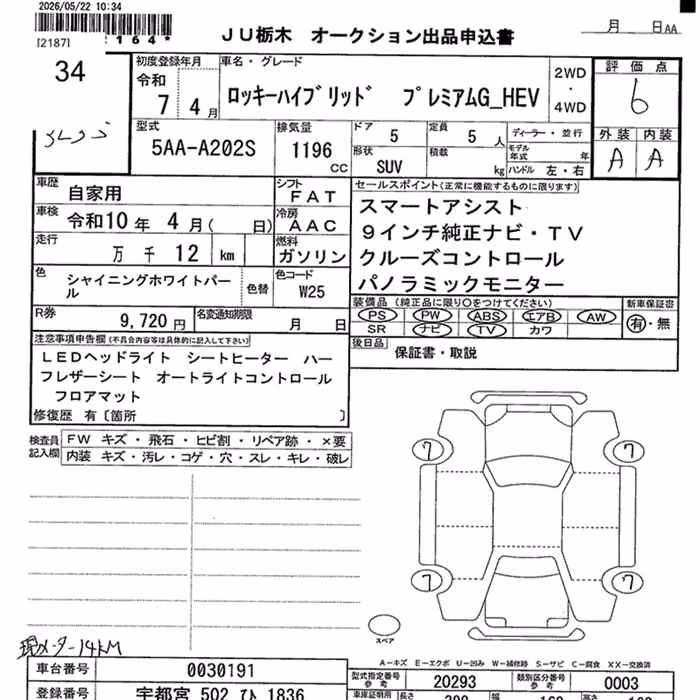 2026/05/22 10:34
[2187]
*164*
JU栃木 オークション出品申込書
月 日AA
34
初度登録年月
令和
7 4月
車名・グレード
ロッキーハイブリッド プレミアムG_HEV
2WD
・
4WD
評価点
6
型式
5AA-A202S
排気量
1196
CC
ドア
5
定員
5
人
ディーラー・並行
モデル
年式 年
形状
SUV
積載
kg
ハンドル 左・右
外装 内装
A A
車歴
自家用
シフト
FAT
車検
令和10年 4月( 日)
冷房
AAC
走行
万 千 12 km
燃料
ガソリン
色
シャイニングホワイトパー
ル
色替
色コード
W25
R券
9,720円
名変通知期限
月 日
セールスポイント(正常に機能するものに限ります)
スマートアシスト
9インチ純正ナビ・TV
クルーズコントロール
パノラミックモニター
装備品 (純正品に限り○をつけてください)
PS PW ABS エアB AW
SR ナビ TV カワ
新車保証書
有・無
後日品
保証書・取説
注意事項申告欄(不具合内容等は具体的に記入して下さい)
LEDヘッドライト シートヒーター ハー
フレザーシート オートライトコントロール
フロアマット
修復歴 有〔箇所 〕
検査員
記入欄
FW キズ・飛石・ヒビ割・リペア跡・×要
内装 キズ・汚レ・コゲ・穴・スレ・キレ・破レ
7 7
7 7
スペア
現メーター14KM
A-キズ E-エクボ U-凹み W-補修跡 S-サビ C-腐食 XX-交換済
車台番号
0030191
型式指定番号
参考
20293
類別区分番号
参考
0003
登録番号
宇都宮 502 ひ 1836
車庫証明用
長さ
幅